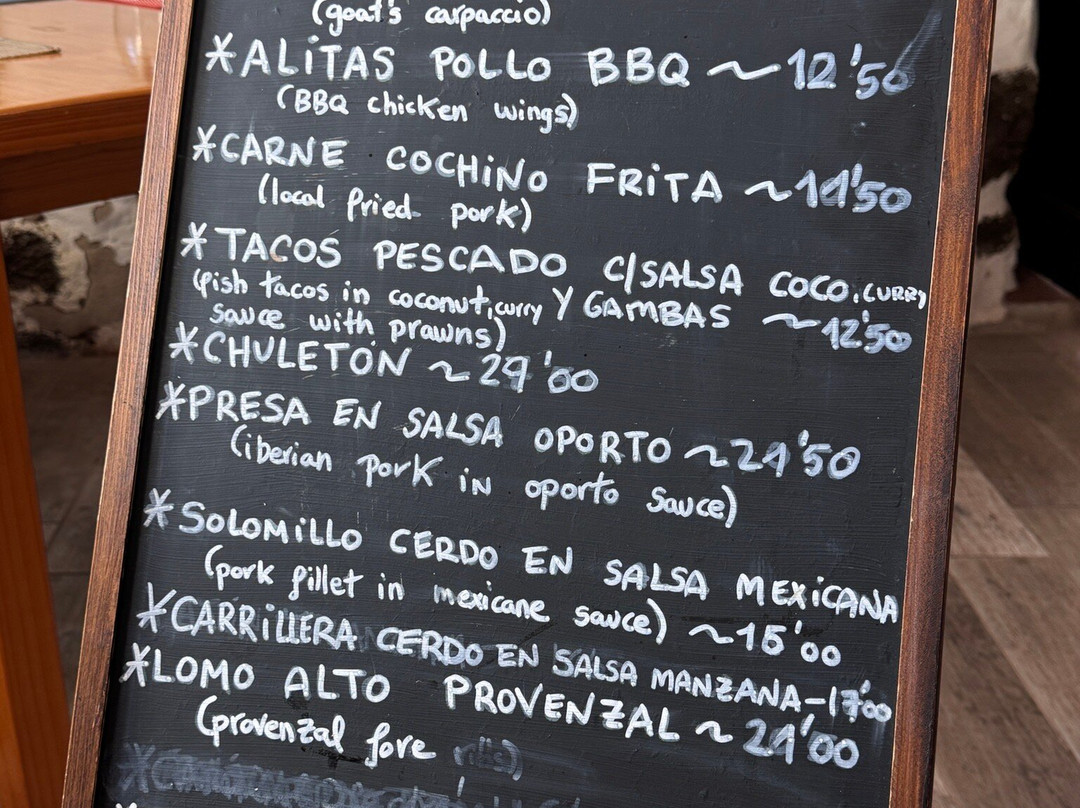 (goat's carpaccio)
*ALITAS POLLO BBQ ~ 12'50
(BBQ chicken wings)
*CARNE COCHINO FRITA ~ 14'50
(local fried pork)
*TACOS PESCADO C/SALSA COCO, CURRY
(fish tacos in coconut, curry Y GAMBAS ~ 12'50
sauce with prawns)
*CHULETÓN ~ 29'00
*PRESA EN SALSA OPORTO ~ 21'50
(iberian pork in oporto sauce)
*SOLOMILLO CERDO EN SALSA MEXICANA
(pork fillet in mexicane sauce) ~ 15'00
*CARRILLERA CERDO EN SALSA MANZANA - 17'00
*LOMO ALTO PROVENZAL ~ 21'00
(provenzal fore